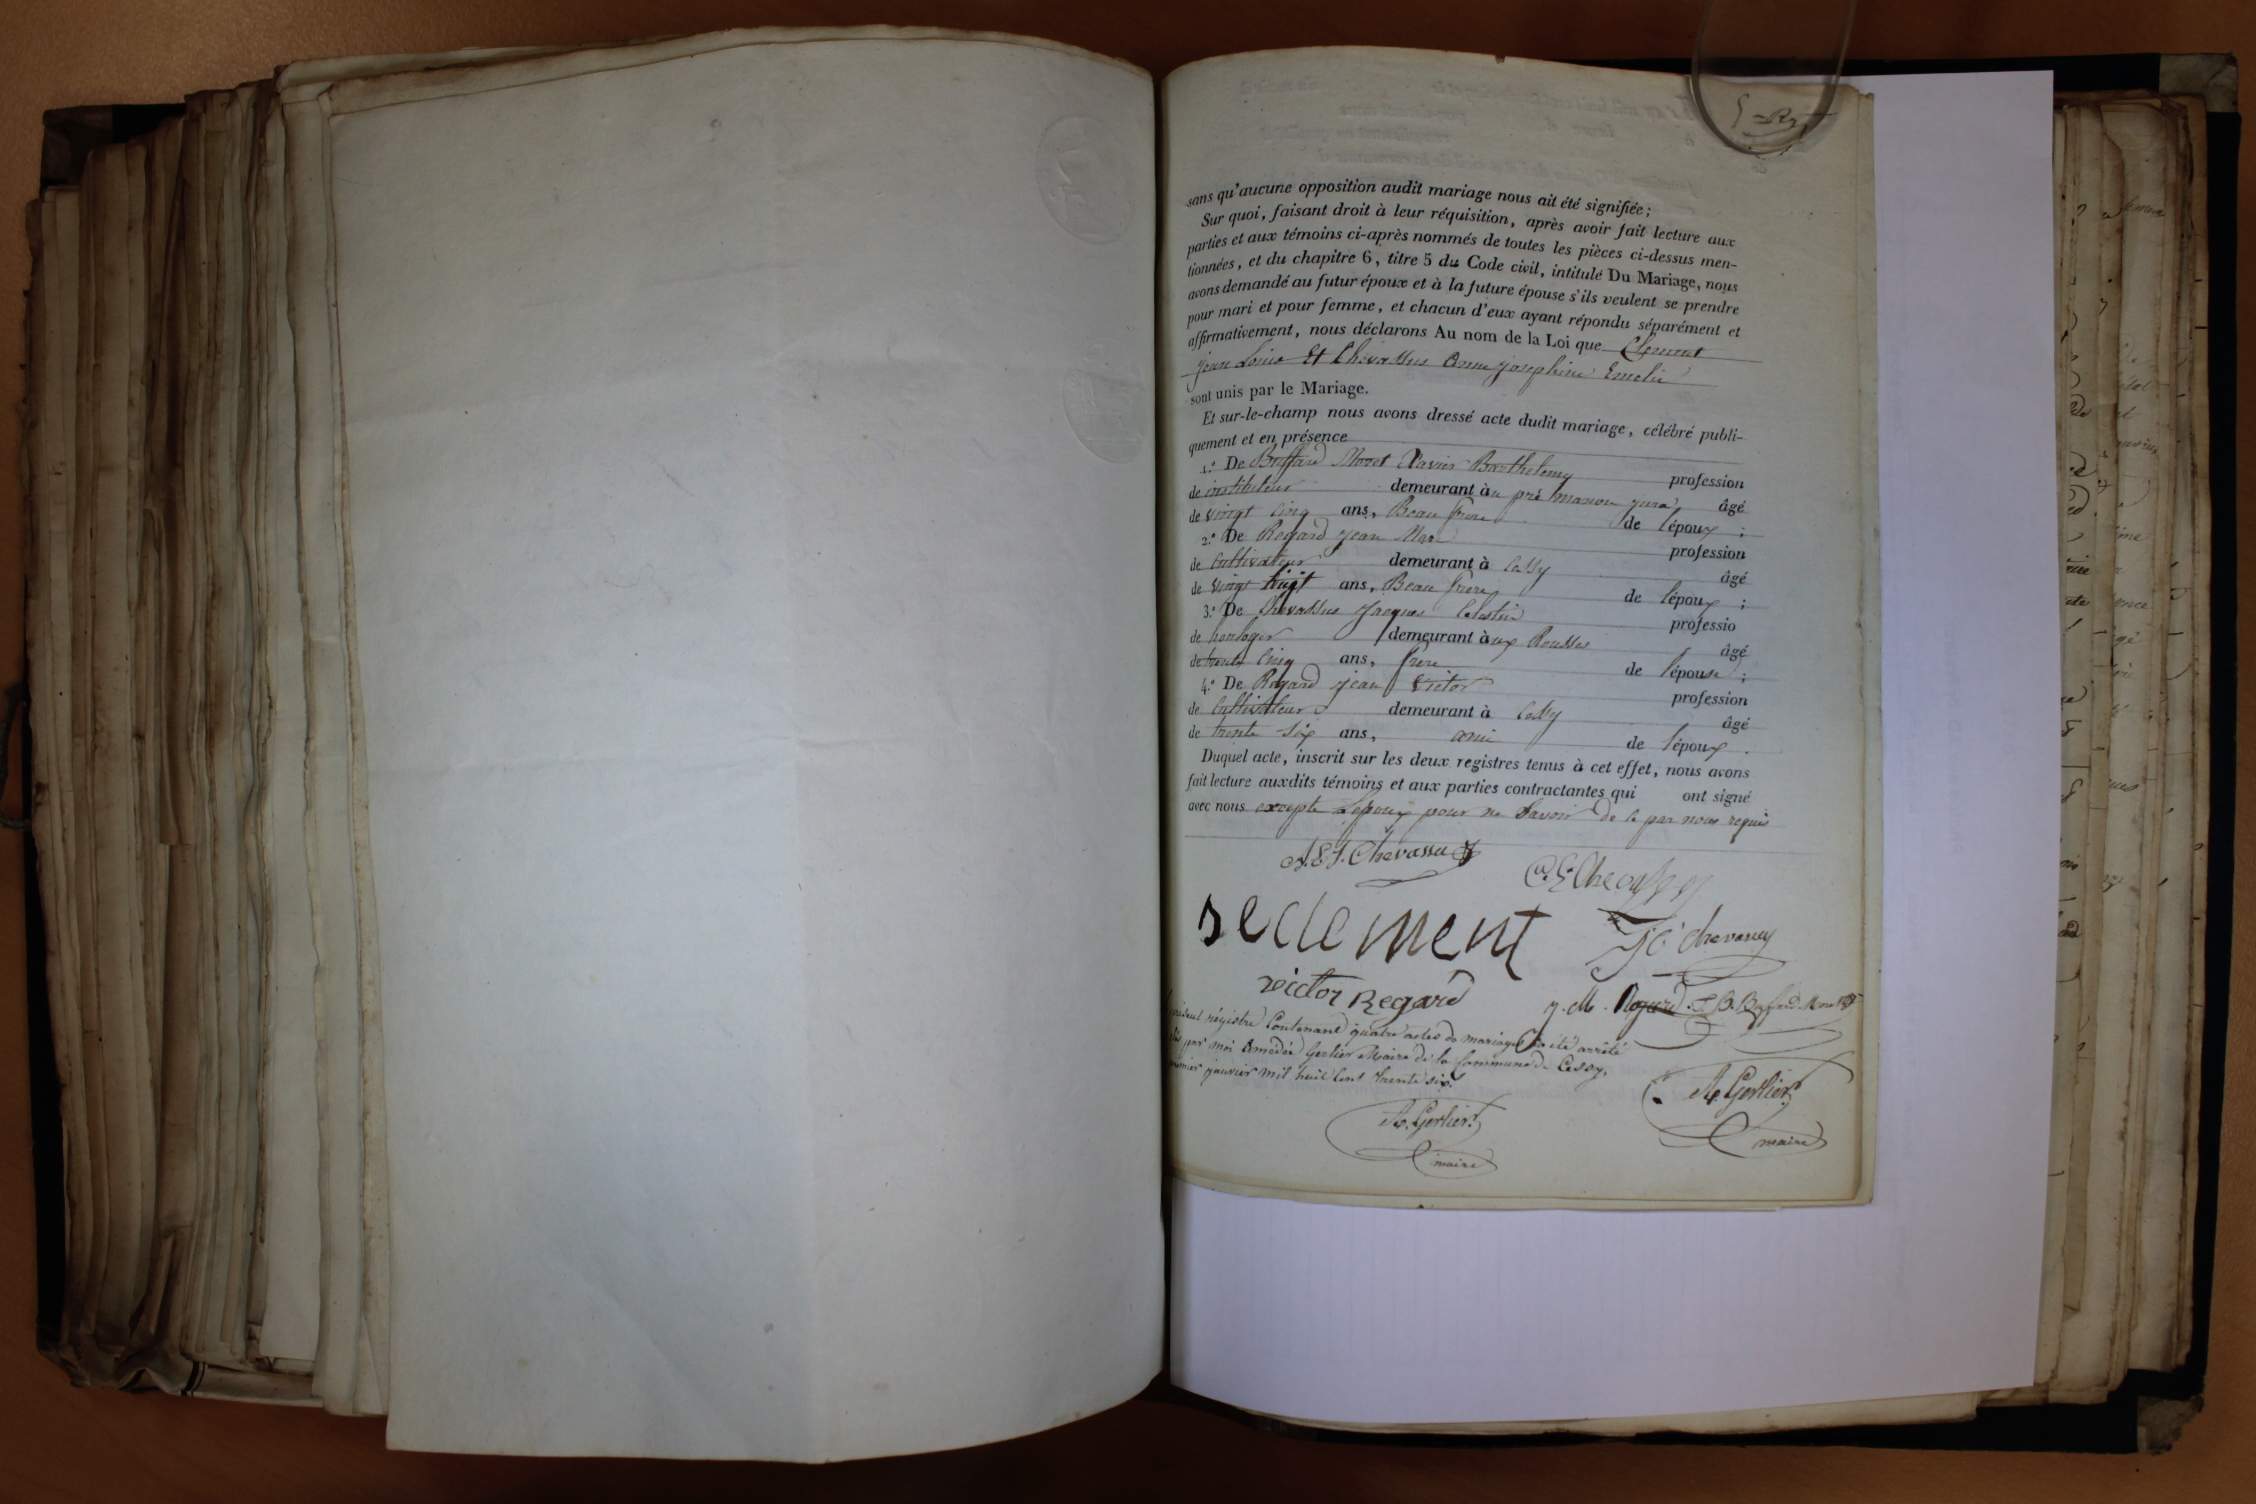 sans qu'aucune opposition audit mariage nous ait été signifiée;
Sur quoi, faisant droit à leur réquisition, après avoir fait lecture aux
parties et aux témoins ci-après nommés de toutes les pièces ci-dessus men-
tionnées, et du chapitre 6, titre 5 du Code civil, intitulé Du Mariage, nous
avons demandé au futur époux et à la future épouse s'ils veulent se prendre
pour mari et pour femme, et chacun d'eux ayant répondu séparément et
affirmativement, nous déclarons Au nom de la Loi que Clement
jean Louis Et Chevassus anne josephine Emelie
sont unis par le Mariage.
Et sur-le-champ nous avons dressé acte dudit mariage, célébré publi-
quement et en présence
1.º De Buffard Moret Xavier Barthelemy profession
de instituteur demeurant à u pré manon jura âgé
de vingt cinq ans, Beau frere de l'époux;
2.º De Regard jean Mar profession
de Cultivateur demeurant à Cessy âgé
de vingt huit ans, Beau frere de l'époux;
3.º De Chevassus Jacques Celestin professio
de horloger demeurant à ux Rousses âgé
de trente cinq ans, frere de l'épouse;
4.º De Regard jean Victor profession
de Cultivateur demeurant à Cessy âgé
de trente six ans, ami de l'époux.
Duquel acte, inscrit sur les deux registres tenus à cet effet, nous avons
fait lecture auxdits témoins et aux parties contractantes qui ont signé
avec nous excepte L'epoux pour ne Savoir de le par nous requis
A.E.J. Chevassus
seclement
J C Chevassus
victor Regard
j. M. Regard X.B. Buffard Moret
present régistre Contenant quatre actes de mariage a été arrêté
par moi Amédée Gerlier Maire de la Commune de Cessy,
premier janvier mil huit cent trente six.
A. Gerlier
maire
A. Gerlier
maire